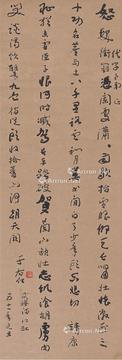 怒髮衝冠憑闌處瀟瀟雨歇抬望眼仰天長嘯壯懷激烈三
十功名塵與土八千里路雲和月莫等閒白了少年頭空悲切靖康
恥猶未雪臣子恨何時滅駕長車踏破賀蘭山缺壯志飢餐胡虜肉
笑談渴飲匈奴血待從頭收拾舊山河朝天闕
于右任